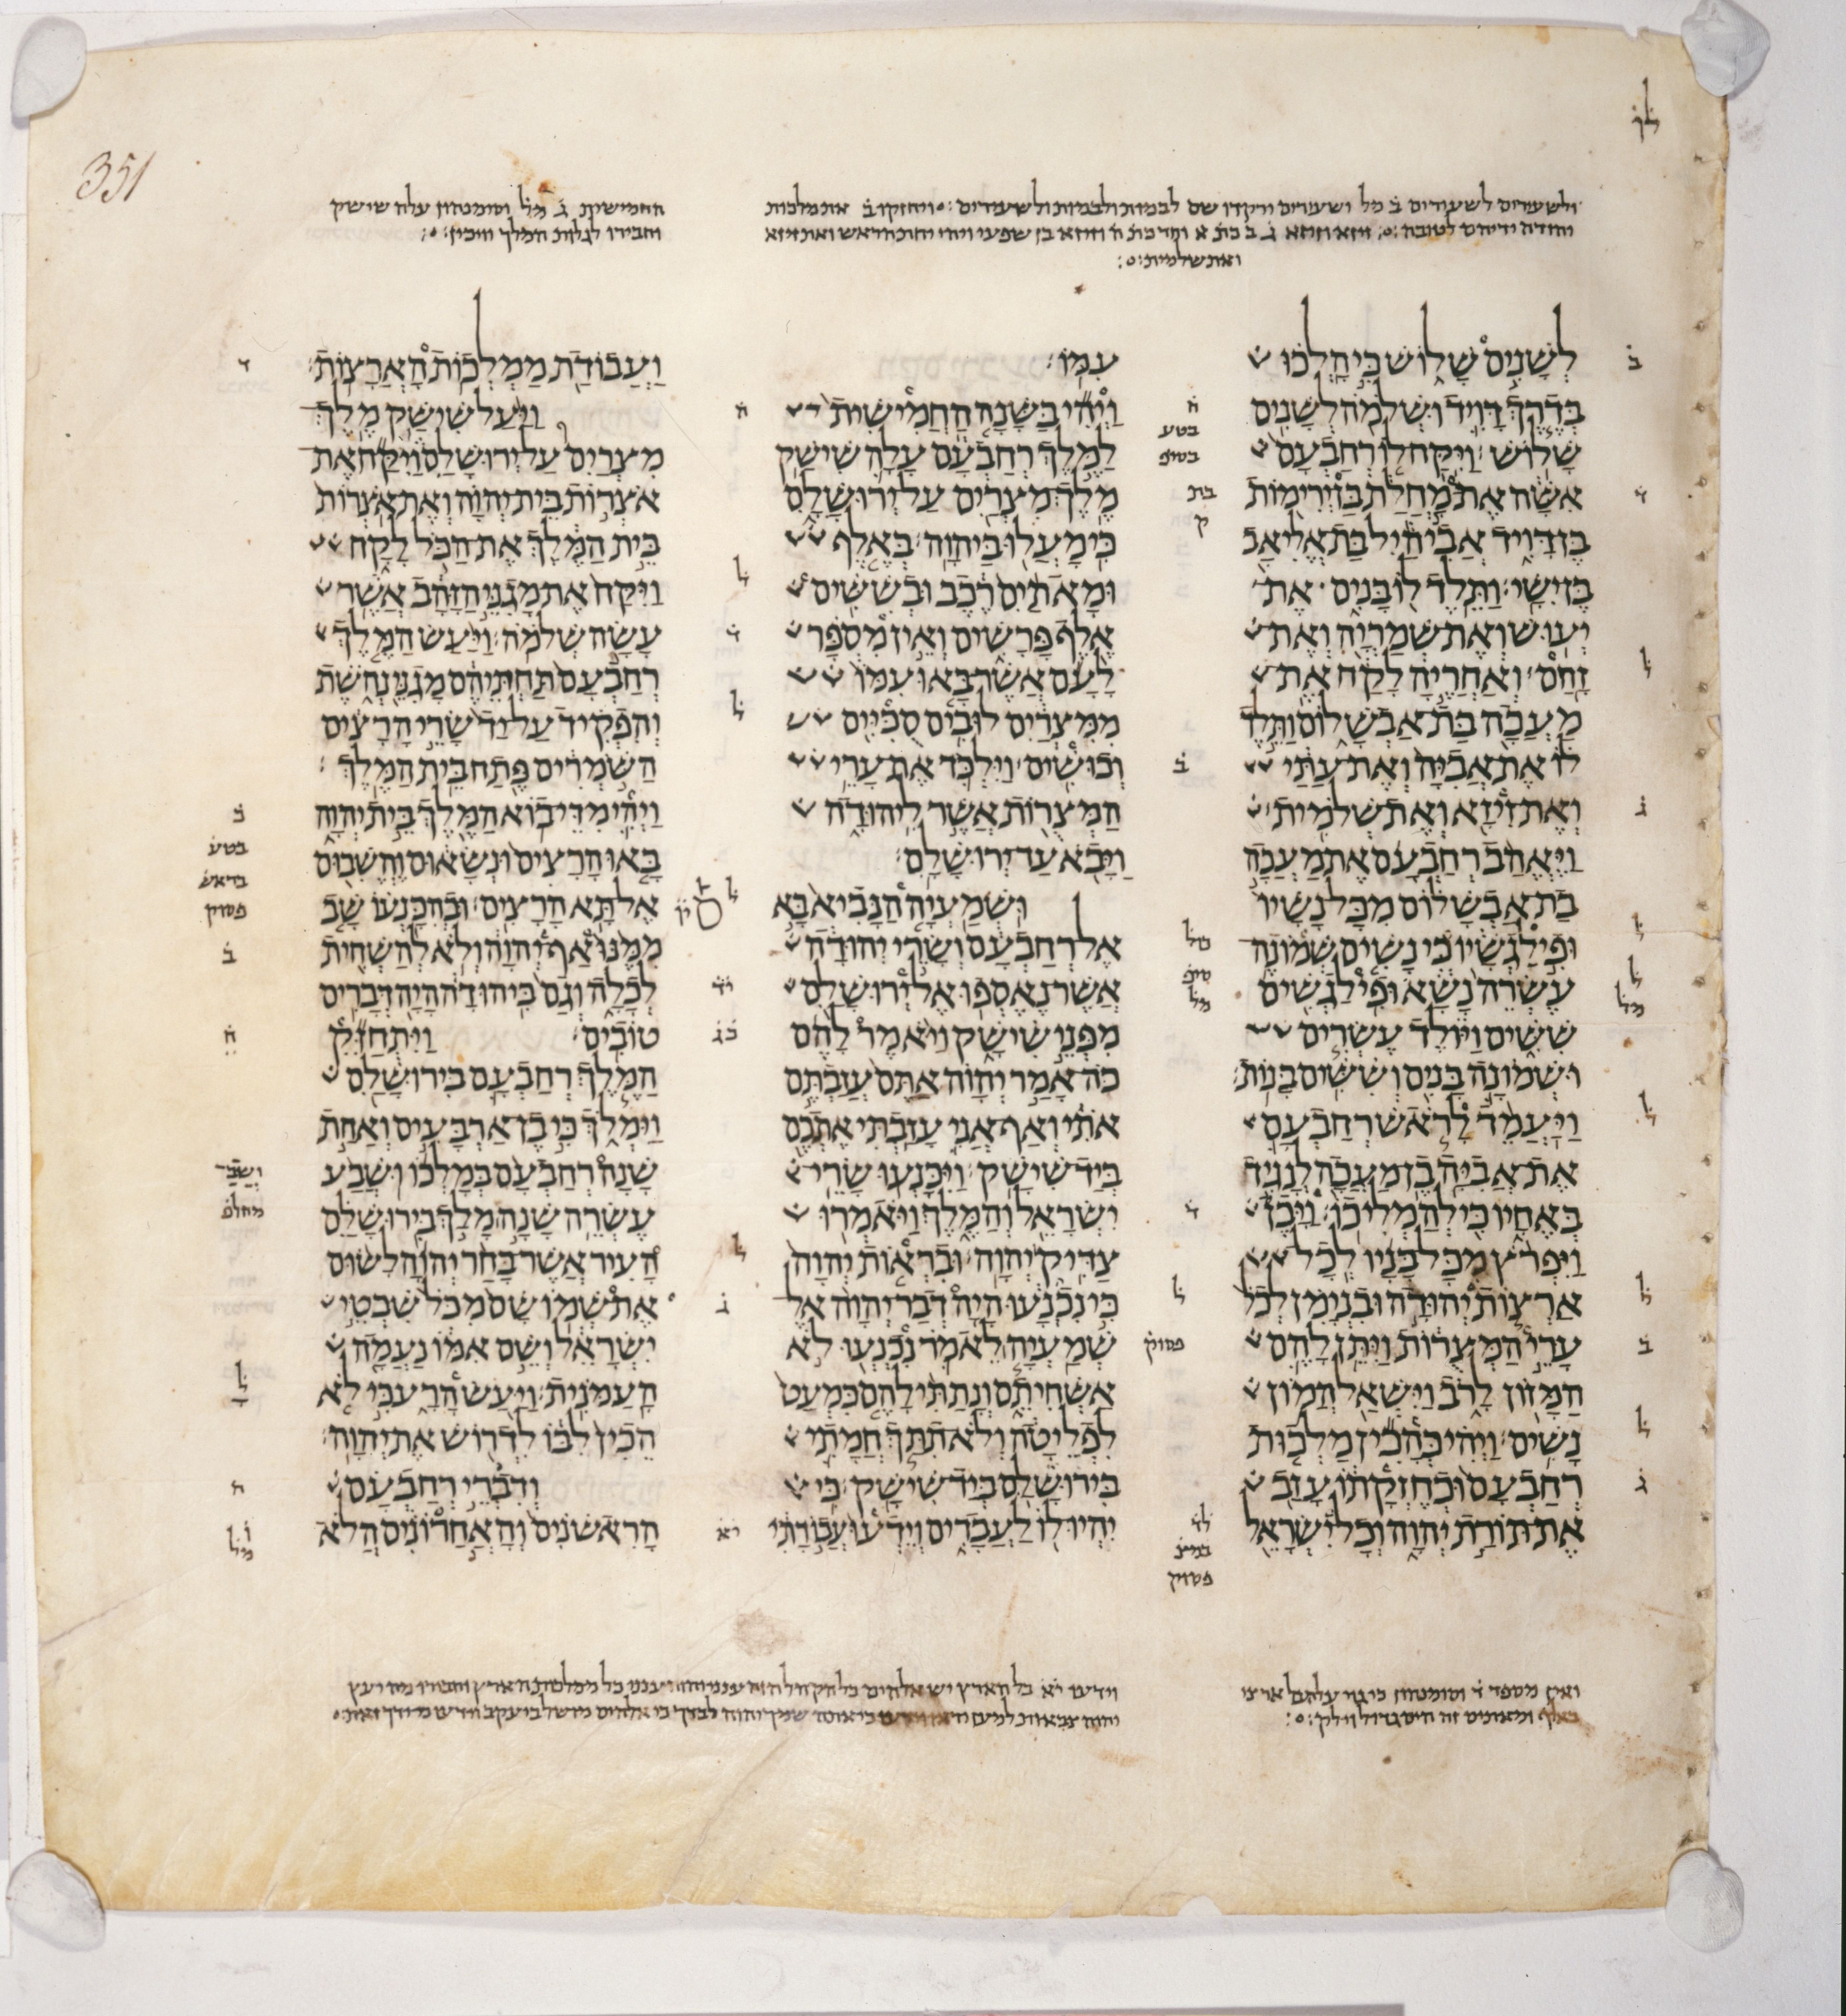 351
ולשעירים לשעירים ב מל ושעירים ירקדו שם לבמות ולבמות ולשעירים ויחזקו ב את מלכות
יהודה ידיהם לטובה זיזא וזיזא וזיזא בן שפעי ויהי יחת הראש ואת זיזא
ואת שלמית
החמישית ג מל וסימנהון עלה שישק
וחבירו לגלות המלך יויכין
לשנים שלוש כי הלכו
בדרך דויד ושלמה לשנים
שלוש׃ ויקח לו רחבעם
אשה את מחלת בן ירימות
בן דויד אביהיל בת אליאב
בן ישי׃ ותלד לו בנים את
יעוש ואת שמריה ואת
זהם׃ ואחריה לקח את
מעכה בת אבשלום ותלד
לו את אביה ואת עתי
ואת זיזא ואת שלמית׃
ויאהב רחבעם את מעכה
בת אבשלום מכל נשיו
ופילגשיו כי נשים שמונה
עשרה נשא ופילגשים
ששים ויולד עשרים
ושמונה בנים וששים בנות׃
ויעמד לראש רחבעם
את אביה בן מעכה לנגיד
באחיו כי להמליכו׃ ויבן
ויפרץ מכל בניו לכל
ארצות יהודה ובנימן לכל
ערי המצרות ויתן להם
המזון לרב וישאל המון
נשים׃ ויהי כהכין מלכות
רחבעם וכחזקתו עזב
את תורת יהוה וכל ישראל
עמו׃
ויהי בשנה החמישית
למלך רחבעם עלה שישק
מלך מצרים על ירושלם
כי מעלו ביהוה׃ באלף
ומאתים רכב ובששים
אלף פרשים ואין מספר
לעם אשר באו עמו
ממצרים לובים סכיים
וכושים׃ וילכד את ערי
המצרות אשר ליהודה
ויבא עד ירושלם׃
ושמעיה הנביא בא
אל רחבעם ושרי יהודה
אשר נאספו אל ירושלם
מפני שישק ויאמר להם
כה אמר יהוה אתם עזבתם
אתי ואף אני עזבתי אתכם
ביד שישק׃ ויכנעו שרי
ישראל והמלך ויאמרו
צדיק יהוה׃ ובראות יהוה
כי נכנעו היה דבר יהוה אל
שמעיה לאמר נכנעו לא
אשחיתם ונתתי להם כמעט
לפליטה ולא תתך חמתי
בירושלם ביד שישק׃ כי
יהיו לו לעבדים וידעו עבודתי
ועבודת ממלכות הארצות׃
ויעל שישק מלך
מצרים על ירושלם ויקח את
אצרות בית יהוה ואת אצרות
בית המלך את הכל לקח
ויקח את מגני הזהב אשר
עשה שלמה׃ ויעש המלך
רחבעם תחתיהם מגני נחשת
והפקיד על יד שרי הרצים
השמרים פתח בית המלך׃
ויהי מדי בוא המלך בית יהוה
באו הרצים ונשאום והשבום
אל תא הרצים׃ ובהכנעו שב
ממנו אף יהוה ולא להשחית
לכלה וגם ביהודה היה דברים
טובים׃ ויתחזק
המלך רחבעם בירושלם
וימלך כי בן ארבעים ואחת
שנה רחבעם במלכו ושבע
עשרה שנה מלך בירושלם
העיר אשר בחר יהוה לשום
את שמו שם מכל שבטי
ישראל ושם אמו נעמה
העמנית׃ ויעש הרע כי לא
הכין לבו לדרוש את יהוה׃
ודברי רחבעם
הראשנים והאחרונים הלא
ואין מספר ד וסימנהון כי גוי עלה על ארצי
וידעו יא כל הארץ יש אלהים כל הקהל הזה